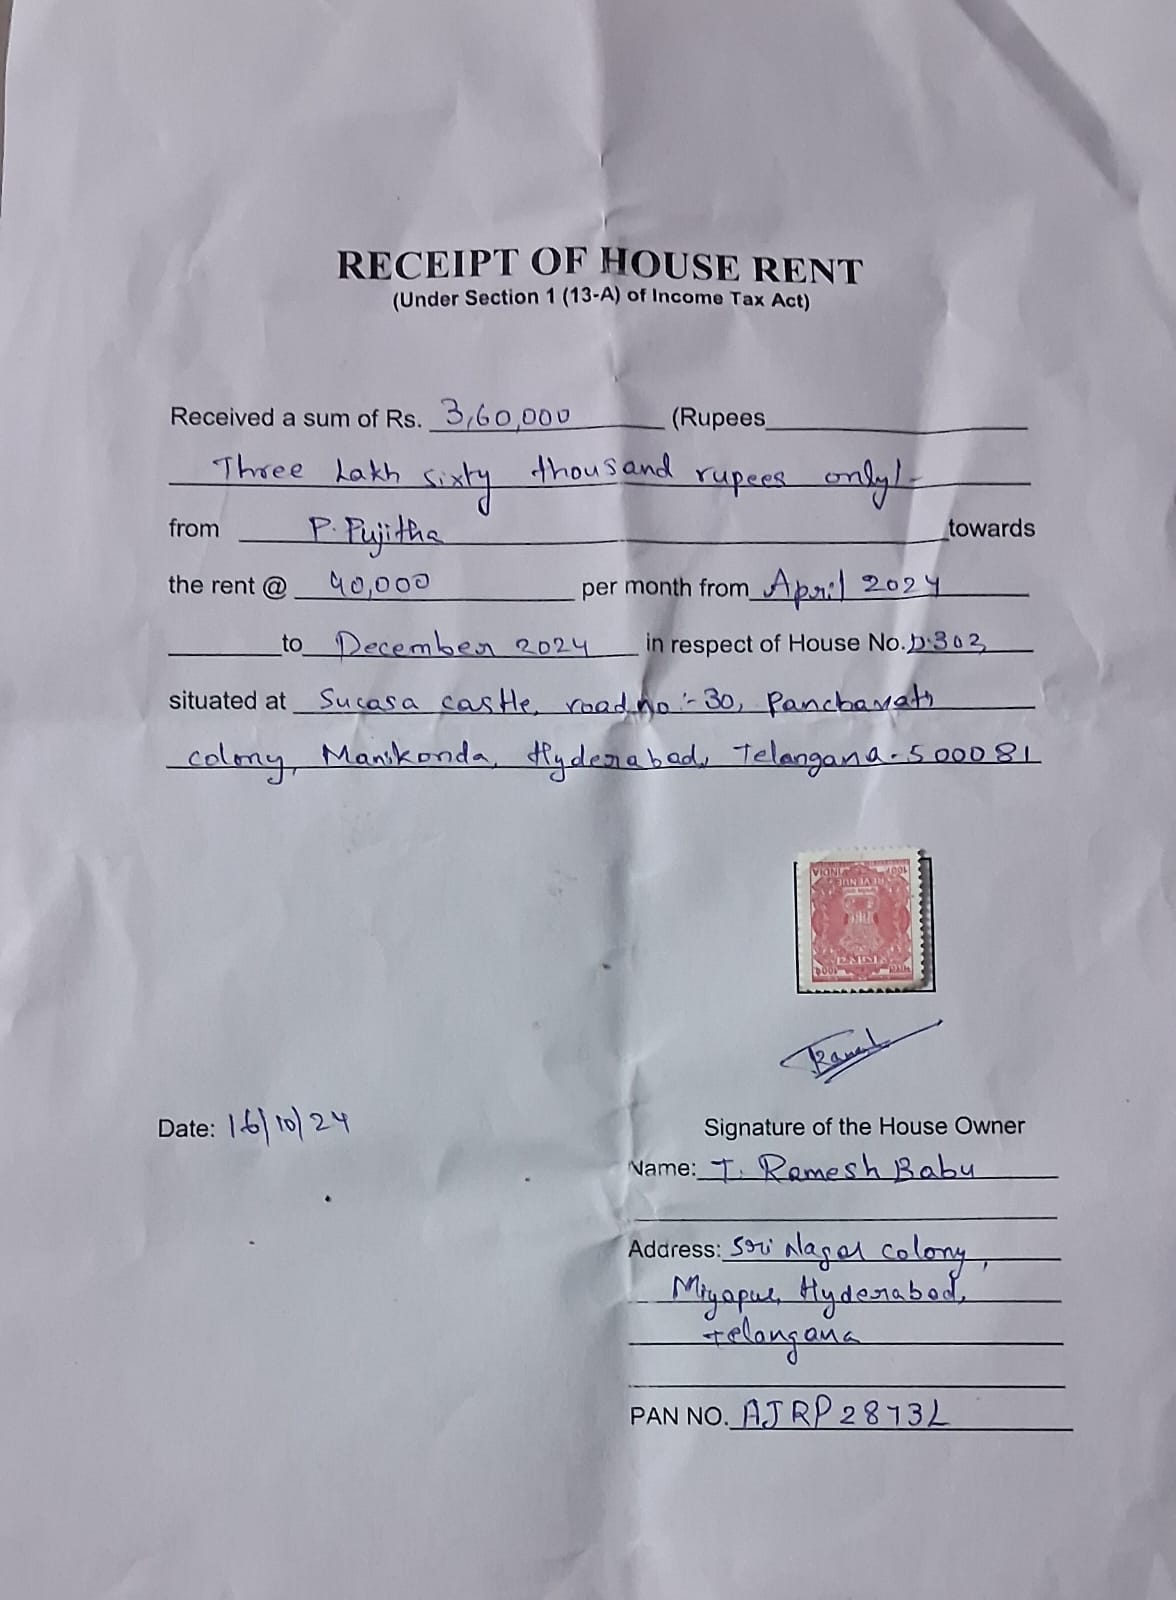 RECEIPT OF HOUSE RENT
(Under Section 1 (13-A) of Income Tax Act)
Received a sum of Rs. 3,60,000 (Rupees
Three Lakh sixty thousand rupees only/-
from P. Pujitha towards
the rent @ 40,000 per month from April 2024
to December 2024 in respect of House No. D-302
situated at Sucasa castle, road no :- 30, Panchavati
colony, Manikonda, Hyderabad, Telangana - 500081
INDIA
REVENUE
Date: 16/10/24
Signature of the House Owner
Name: T. Ramesh Babu
Address: Sri Nagar colony,
Miyapur, Hyderabad,
telangana
PAN NO. AJRP2873L